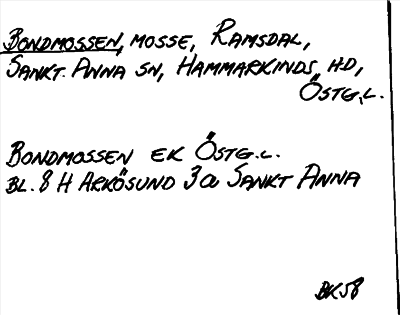 BONDMOSSEN, MOSSE, RAMSDAL,
SANKT ANNA SN, HAMMARKINDS HD,
ÖSTG.L.
BONDMOSSEN EK ÖSTG.L.
BL. 8 H ARKÖSUND 3a SANKT ANNA
BK58